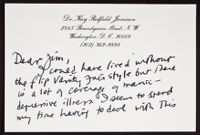 Dr. Kay Redfield Jamison
Washington, D. C.
Dear Jim,
I could have lived without
the flip Vanity Fair style but there
is a lot of coverage of manic-
depressive illness. I seem to spend
my time having to deal with this